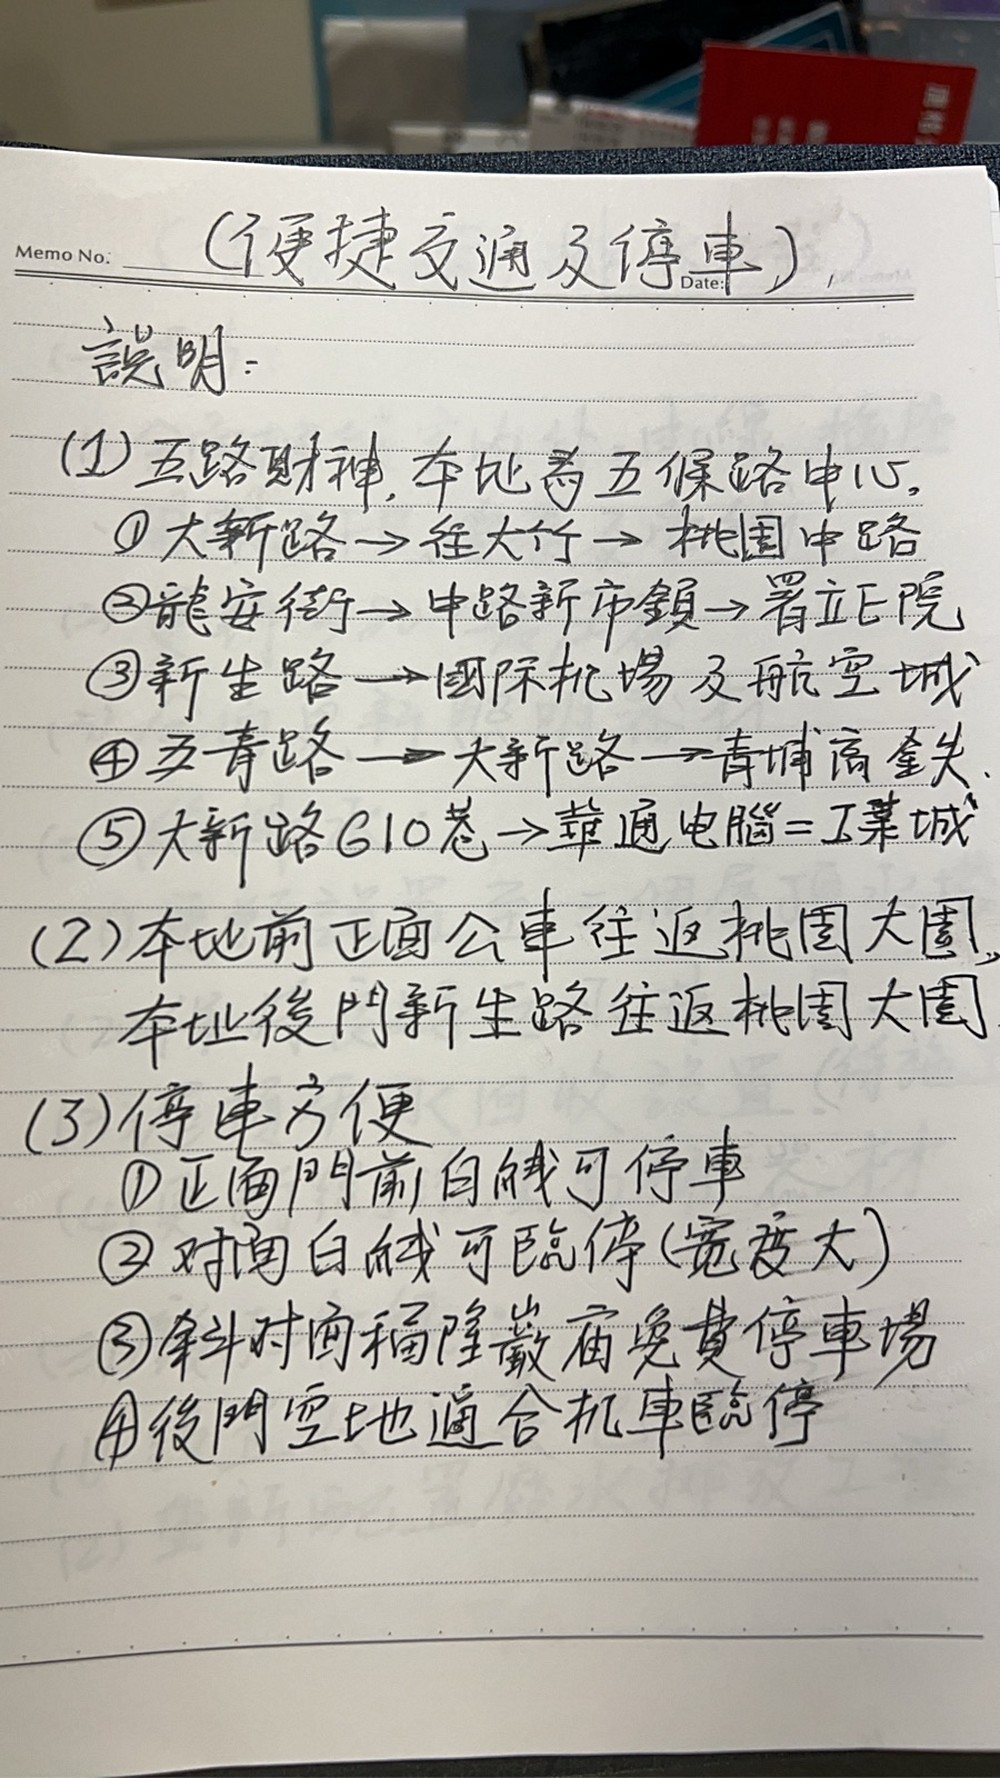 Memo No:
Date:
(便捷交通及停車),
說明:
(1)五路財神,本址為五條路中心,
①大新路→往大竹→桃園中路
②龍安街→中路新市鎮→署立E院
③新生路→國际机場及航空城
④五青路→大新路→青埔高鉄.
⑤大新路610巷→華通电腦=工業城
(2)本地前正面公車往返桃園大園,
本址後門新生路往返桃園大園.
(3)停車方便
①正面門前白線可停車
②对面白線可臨停(寬度大)
③斜对面福隆巖庙免費停車場
④後門空地適合机車臨停